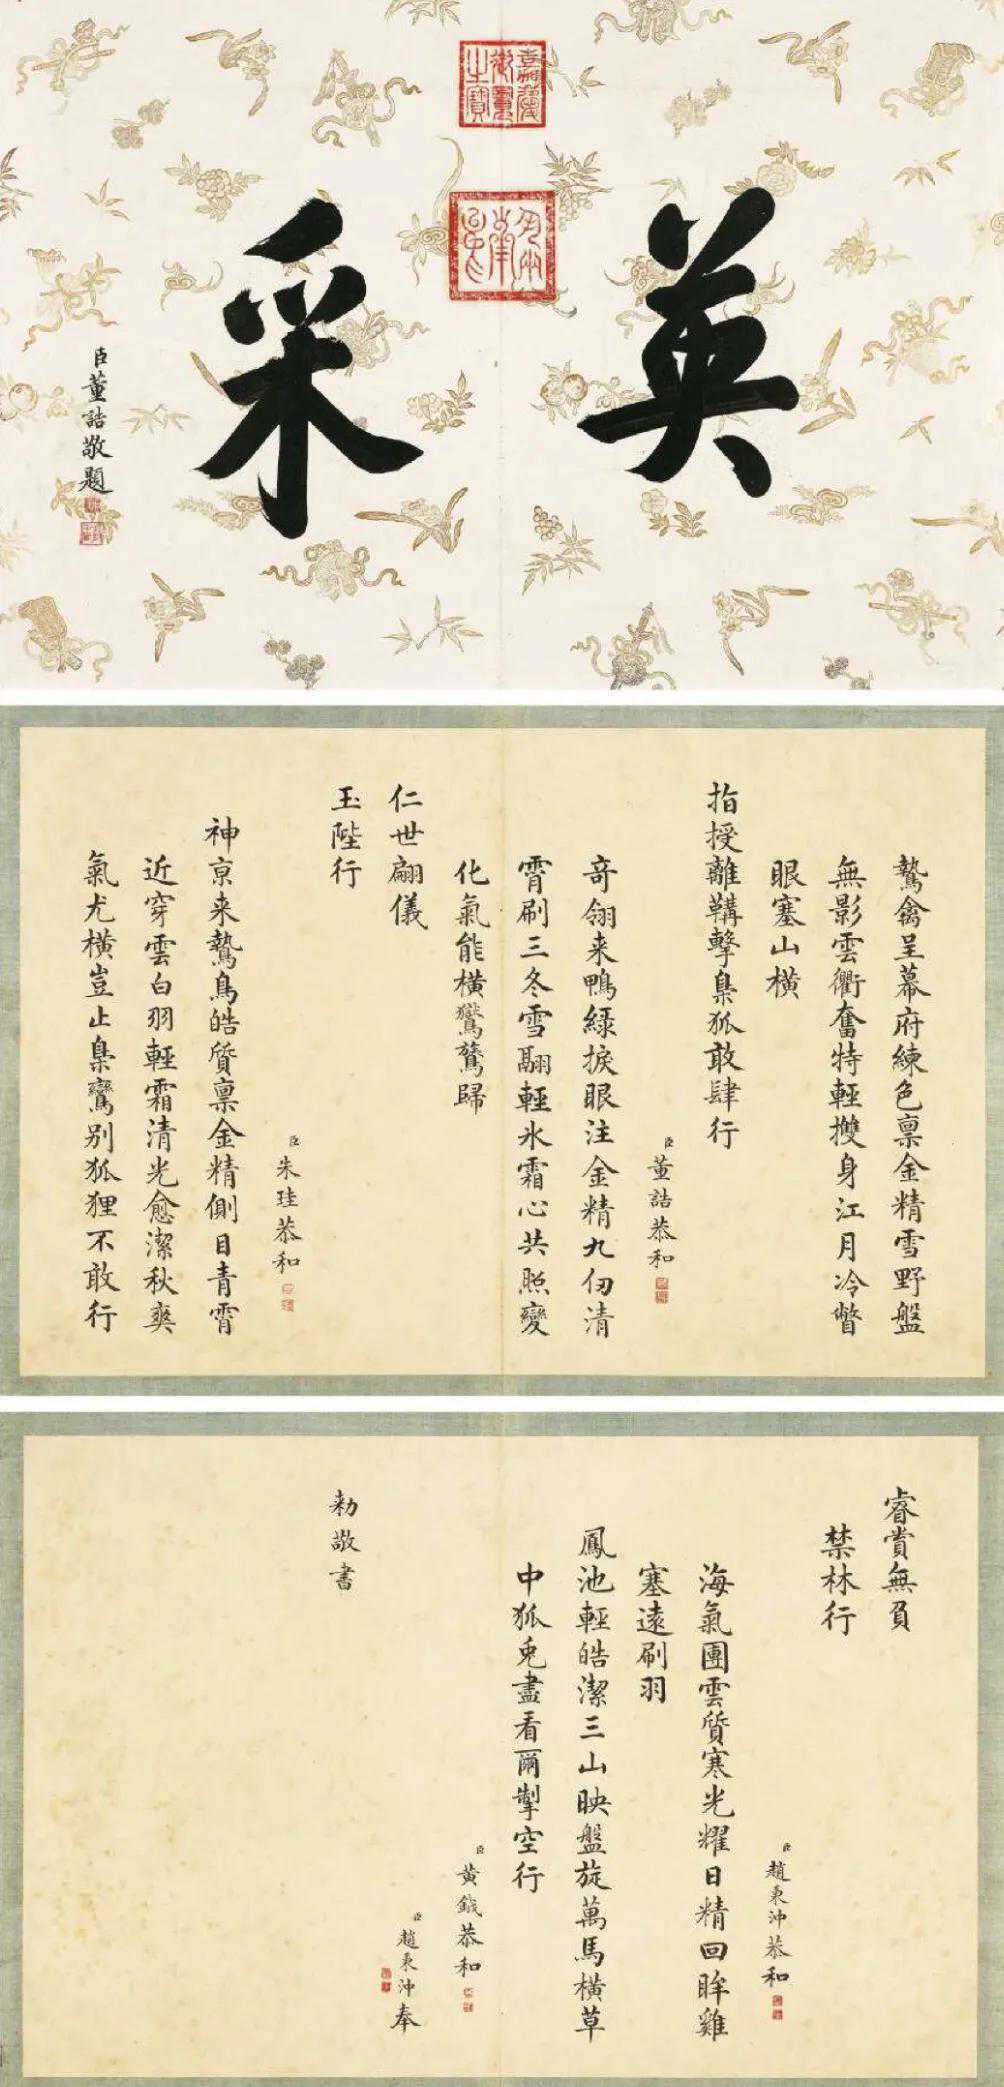 嘉慶御覽之寶
英采
臣董誥敬題
鷙禽呈幕府練色稟金精雪野盤
無影雲衢奮特輕㩳身江月冷瞥
眼塞山橫
指授離鞲擊梟狐敢肆行
臣董誥恭和
奇翎来鴨綠捩眼注金精九仞清
霄刷三冬雪翮輕氷霜心共照變
化氣能橫歸
仁世翩儀
玉陛行
臣朱珪恭和
神京来鷙鳥皓質稟金精側目青霄
近穿雲白羽輕霜清光愈潔秋爽
氣尤橫豈止梟鸞别狐狸不敢行
睿賞無負
禁林行
臣趙秉沖恭和
海氣團雲質寒光耀日精回眸雞
塞遠刷羽
鳳池輕皓潔三山映盤旋萬馬橫草
中狐兔盡看爾掣空行
臣黃鉞恭和
臣趙秉沖奉
勅敬書